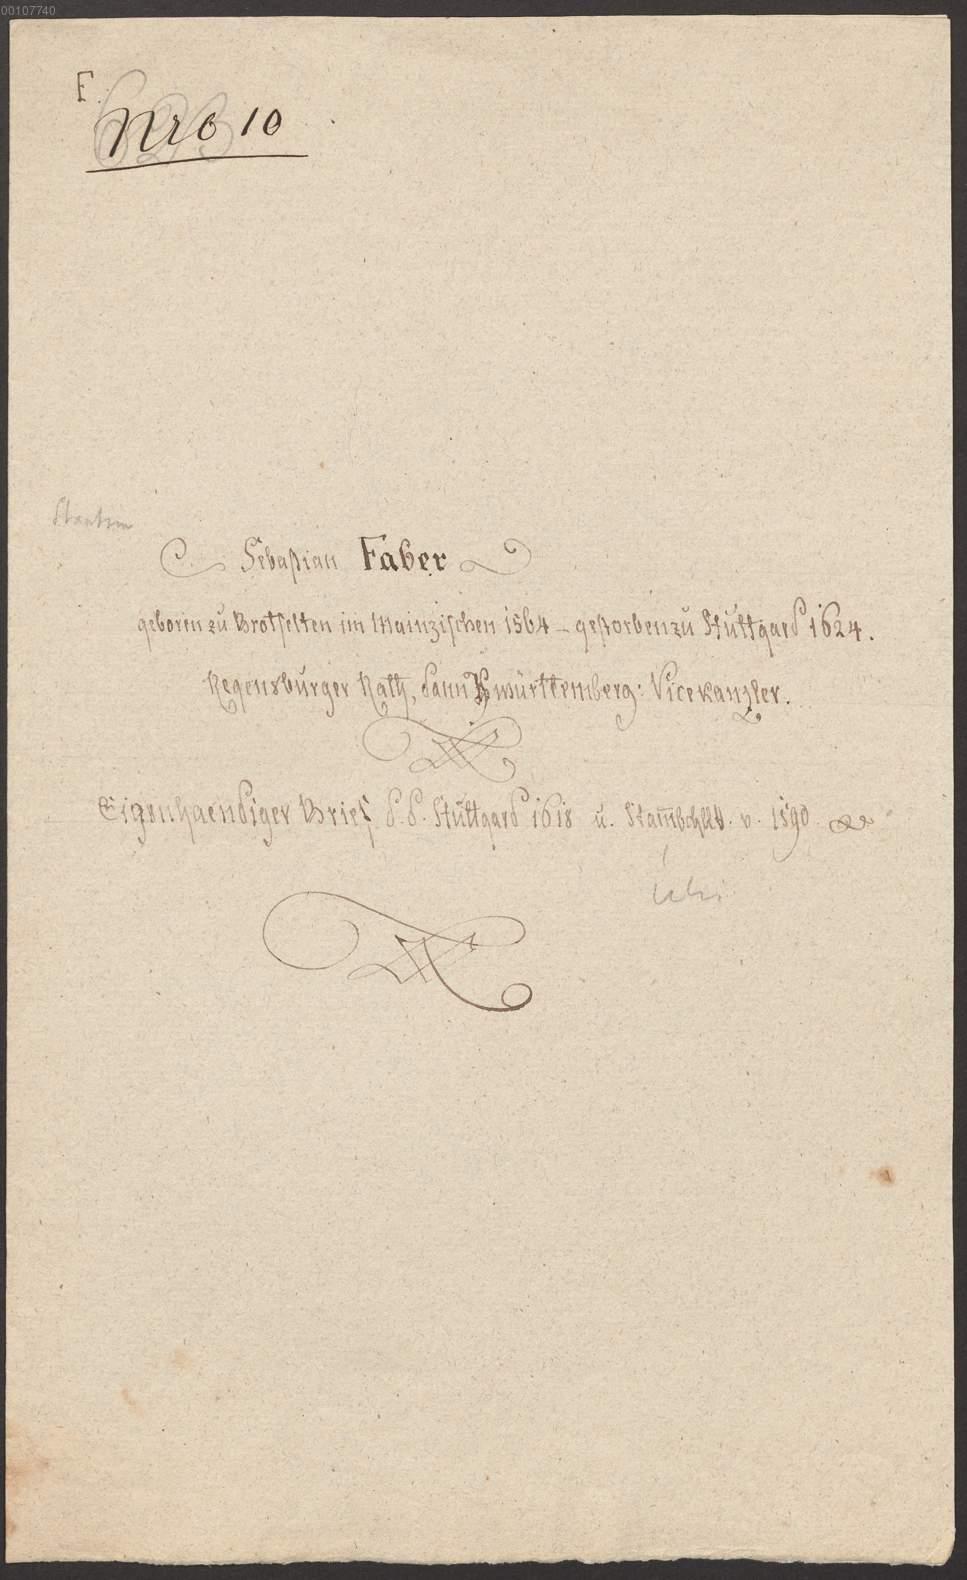 00107740
F.
Nro 10
Sebastian Faber
geboren zu Brotselten im Mainzischen 1564 – gestorben zu Stuttgard 1624.
Regensburger Rath, dann württemberg: Vicekanzler.
Eigenhaendiger Brief d. d. Stuttgard 1618 u. Stammbchbl. v. 1590